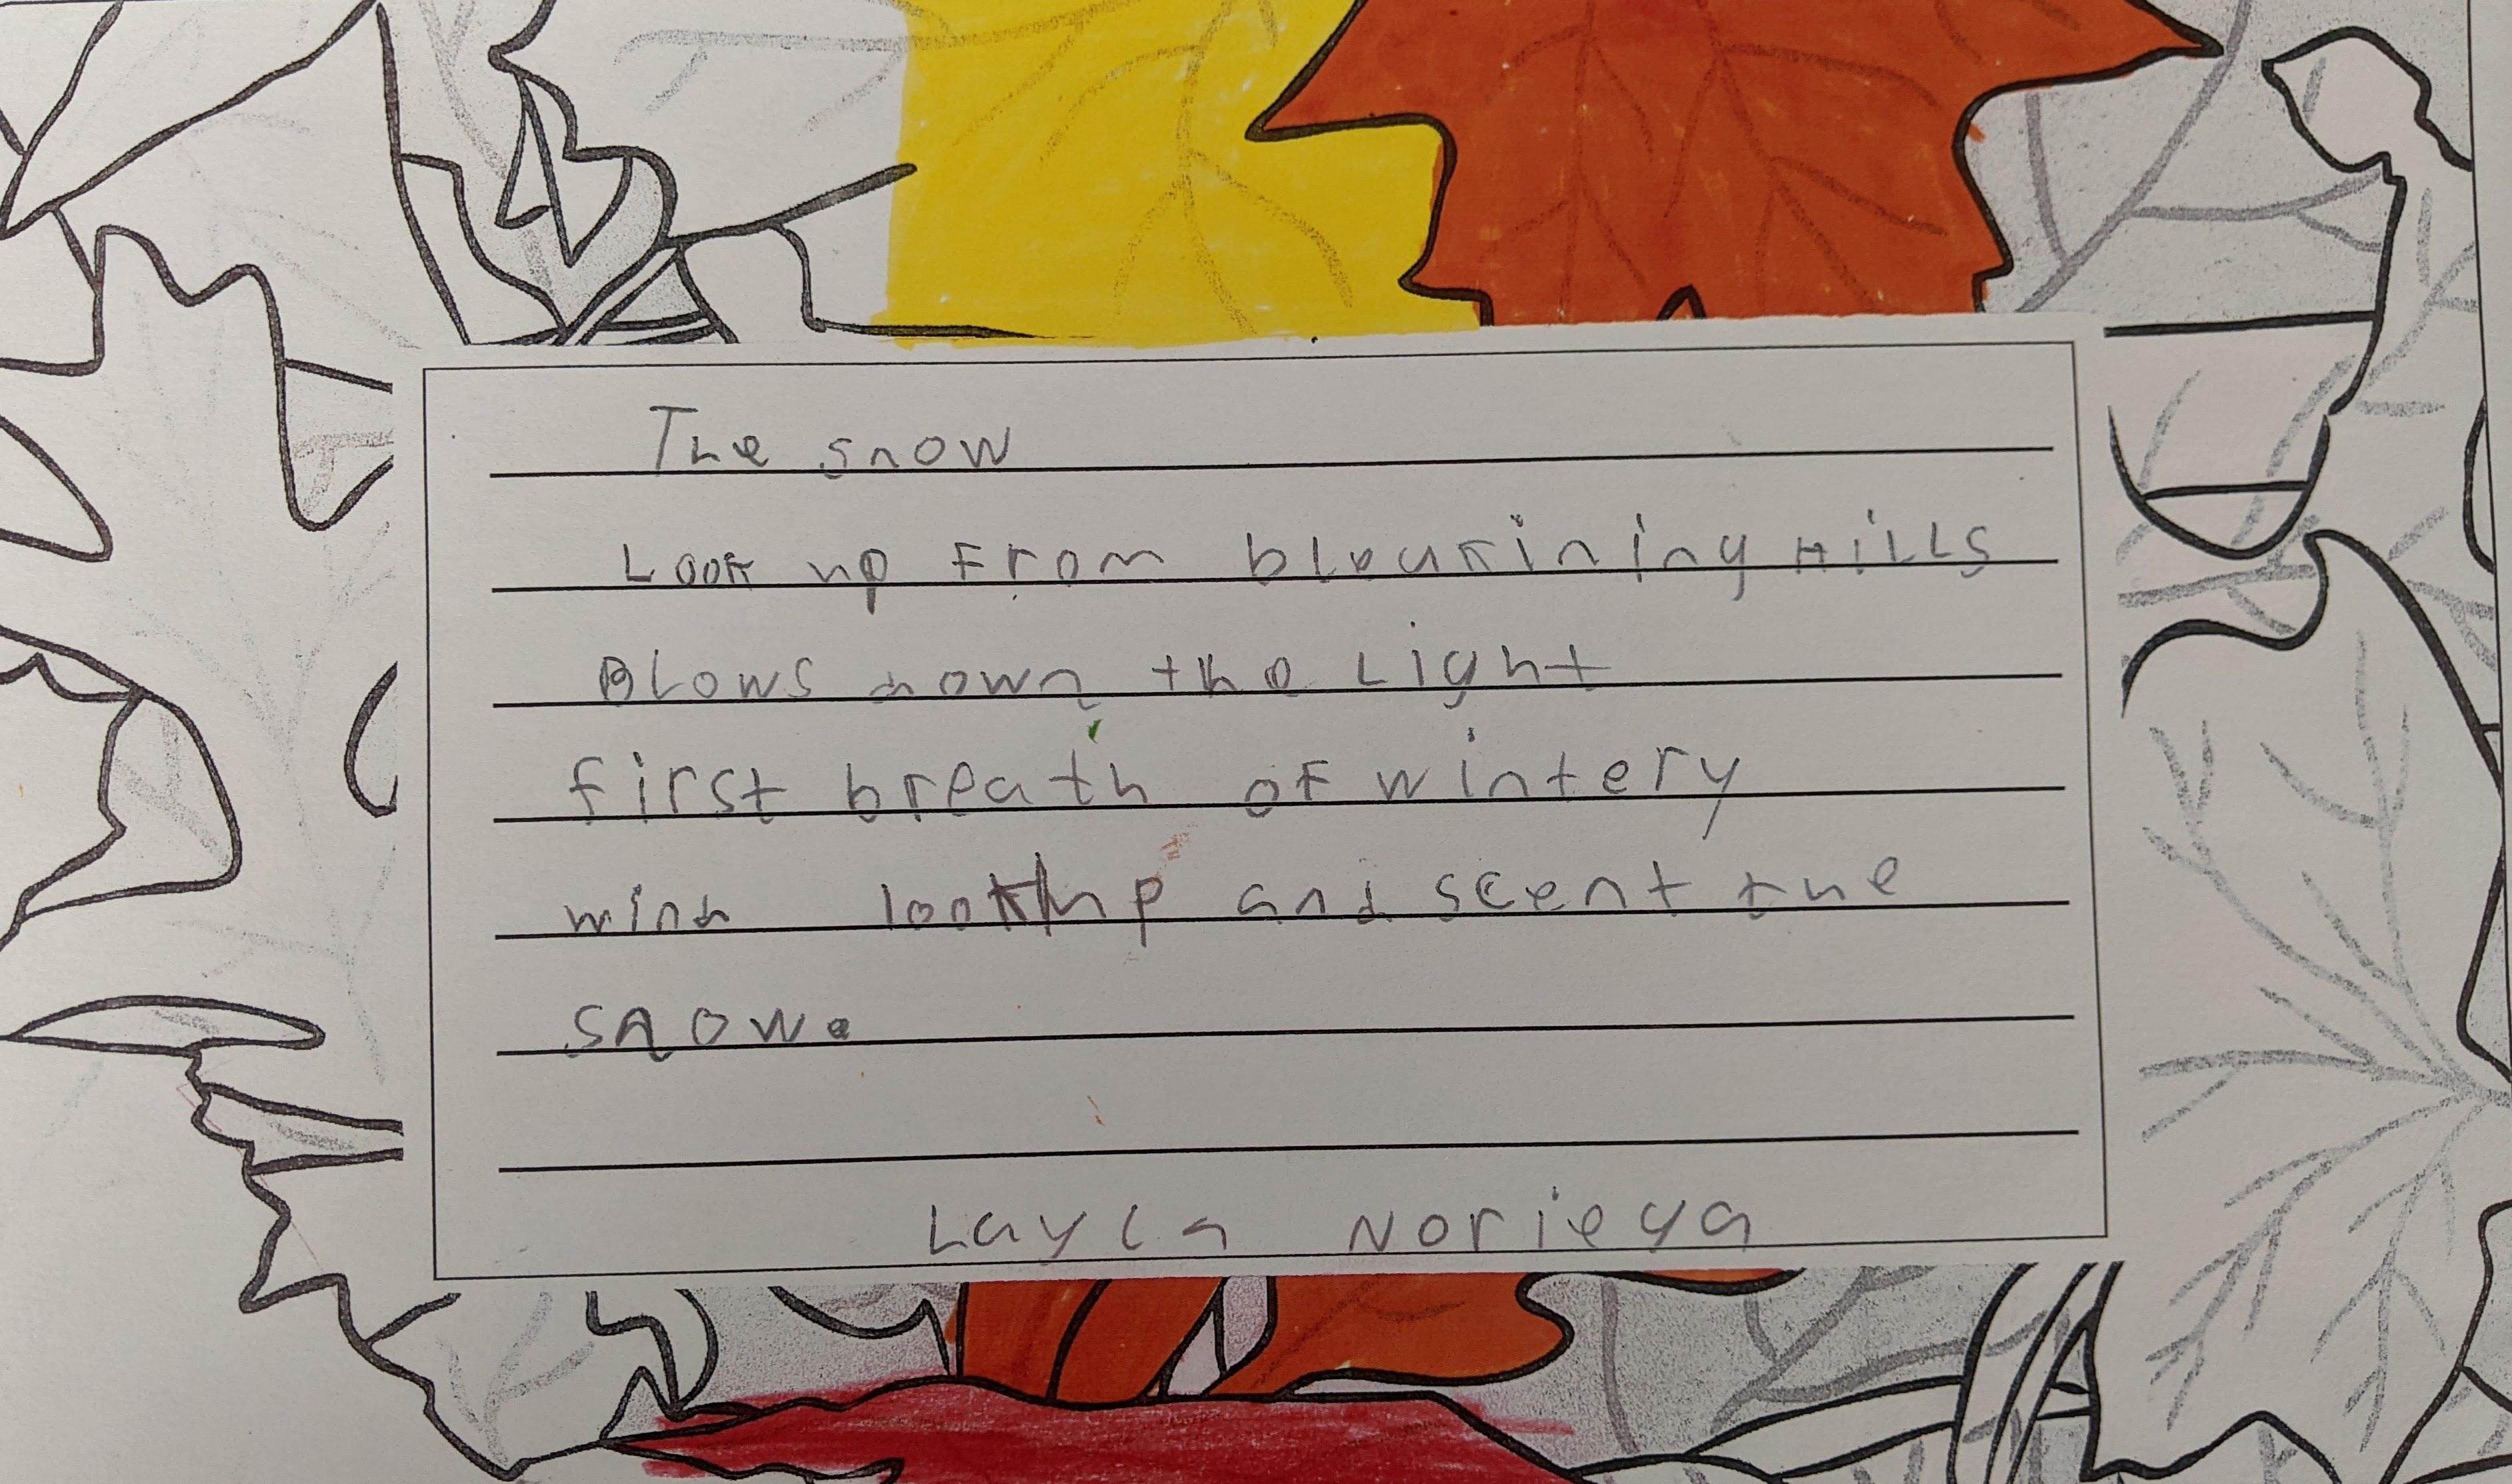 The snow
Look up From bloukining Hills
Blows down the Light
first breath of wintery
wind look up and scent the
snow.
Layla Noriega